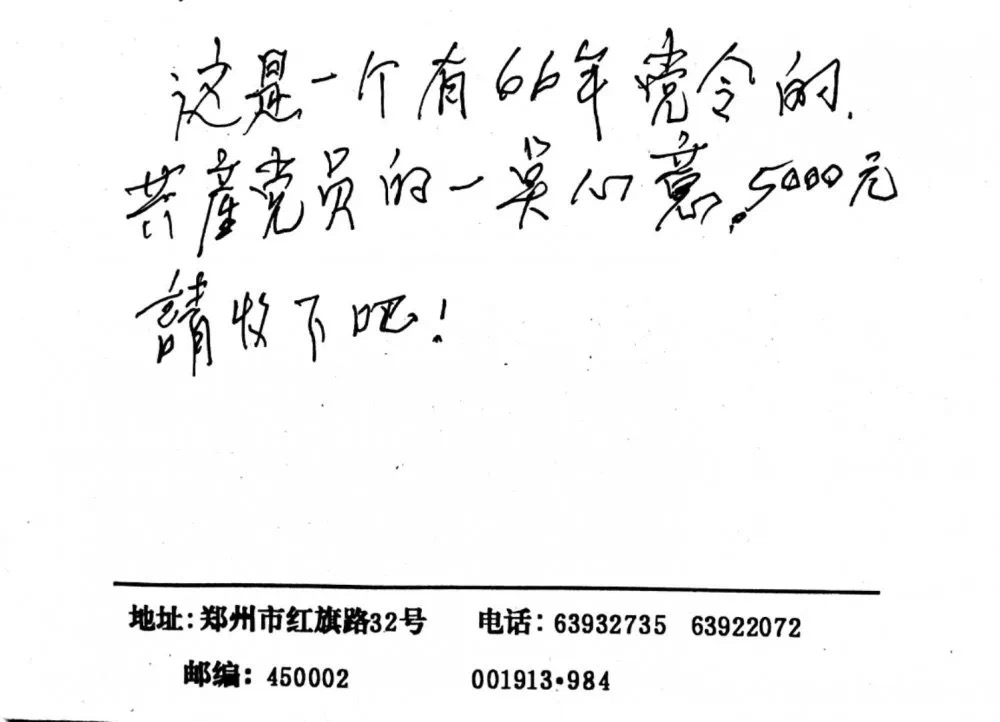 这是一个有66年党令的.
共産党员的一点心意.5000元
請收下吧!
地址:郑州市红旗路32号 电话: 63932735 63922072
邮编: 450002 001913·984